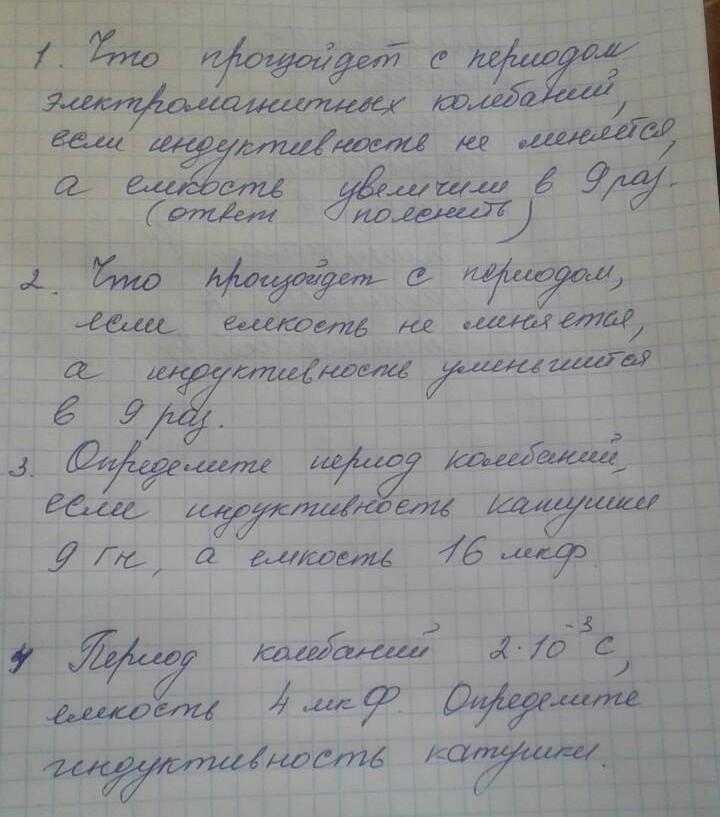 1. Что произойдет с периодом
электромагнитных колебаний,
если индуктивность не меняется,
а емкость увеличили в 9 раз.
(ответ пояснить)
2. Что произойдет с периодом,
если емкость не меняется,
а индуктивность уменьшится
в 9 раз.
3. Определите период колебаний,
если индуктивность катушки
9 Гн, а емкость 16 мкф.
4 Период колебаний 2·10⁻³ С,
емкость 4 мкФ. Определите
индуктивность катушки.